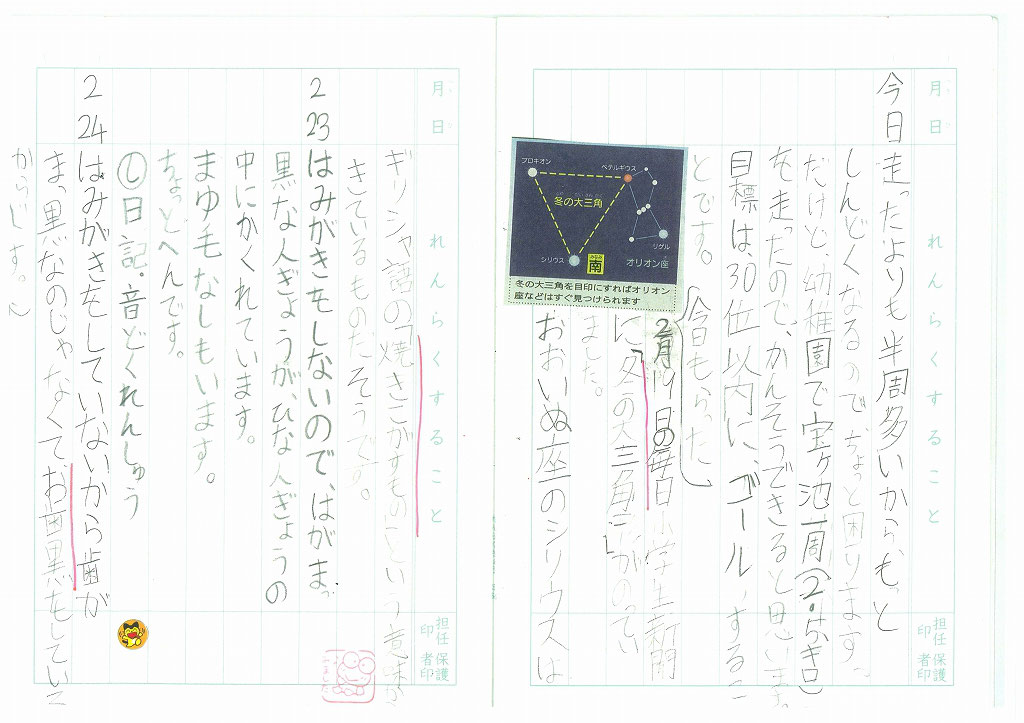 月日 れんらくすること 担任印 保護者印
今日走ったよりも半周多いからもっと
しんどくなるのでちょっと困ります。
だけど、幼稚園で宝ヶ池一周(2.5キロ)
を走ったので、かんそうできると思います。
目標は、30位以内に、ゴールするこ
とです。
(今日もらった)
2月19日の毎日小学生新聞
に「冬の大三角」がのってい
ました。
おおいぬ座のシリウスは
プロキオン
ベテルギウス
冬の大三角
シリウス
南
みなみ
リゲル
オリオン座
冬の大三角を目印にすればオリオン
座などはすぐ見つけられます
月日 れんらくすること 担任印 保護者印
ギリシャ語の「焼きこがすもの」という意味か
きているものだそうです。
2 23 はみがきをしないので、はがまっ
黒な人ぎょうが、ひな人ぎょうの
中にかくれています。
まゆ毛なしもいます。
ちょっとへんです。
し日記・音どくれんしゅう
2 24 はみがきをしていないから歯が
まっ黒なのじゃなくてお歯黒をしてい